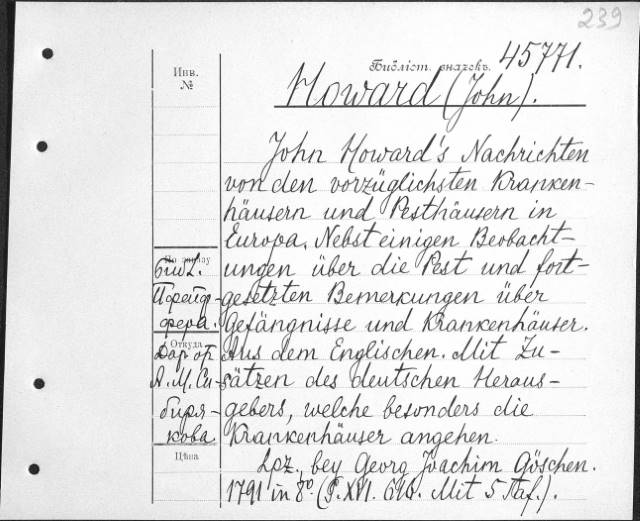 239
Библіот. значекъ. 45771.
Инв.
№
Howard (John).
John Howard's Nachrichten
von den vorzüglichsten Kranken-
häusern und Pesthäusern in
Europa. Nebst einigen Beobacht-
ungen über die Pest und fort-
gesetzten Bemerkungen über
Gefängnisse und Krankenhäuser.
Aus dem Englischen. Mit Zu-
sätzen des deutschen Heraus-
gebers, welche besonders die
Krankenhäuser angehen.
Lpz., bey Georg Joachim Göschen.
1791 in 8º. (S. XVI. 616. Mit 5 Taf.).
Библ.
Пфейф-
фера.
Откуда
Дар от
А. М. Си-
биря-
кова
Цѣна